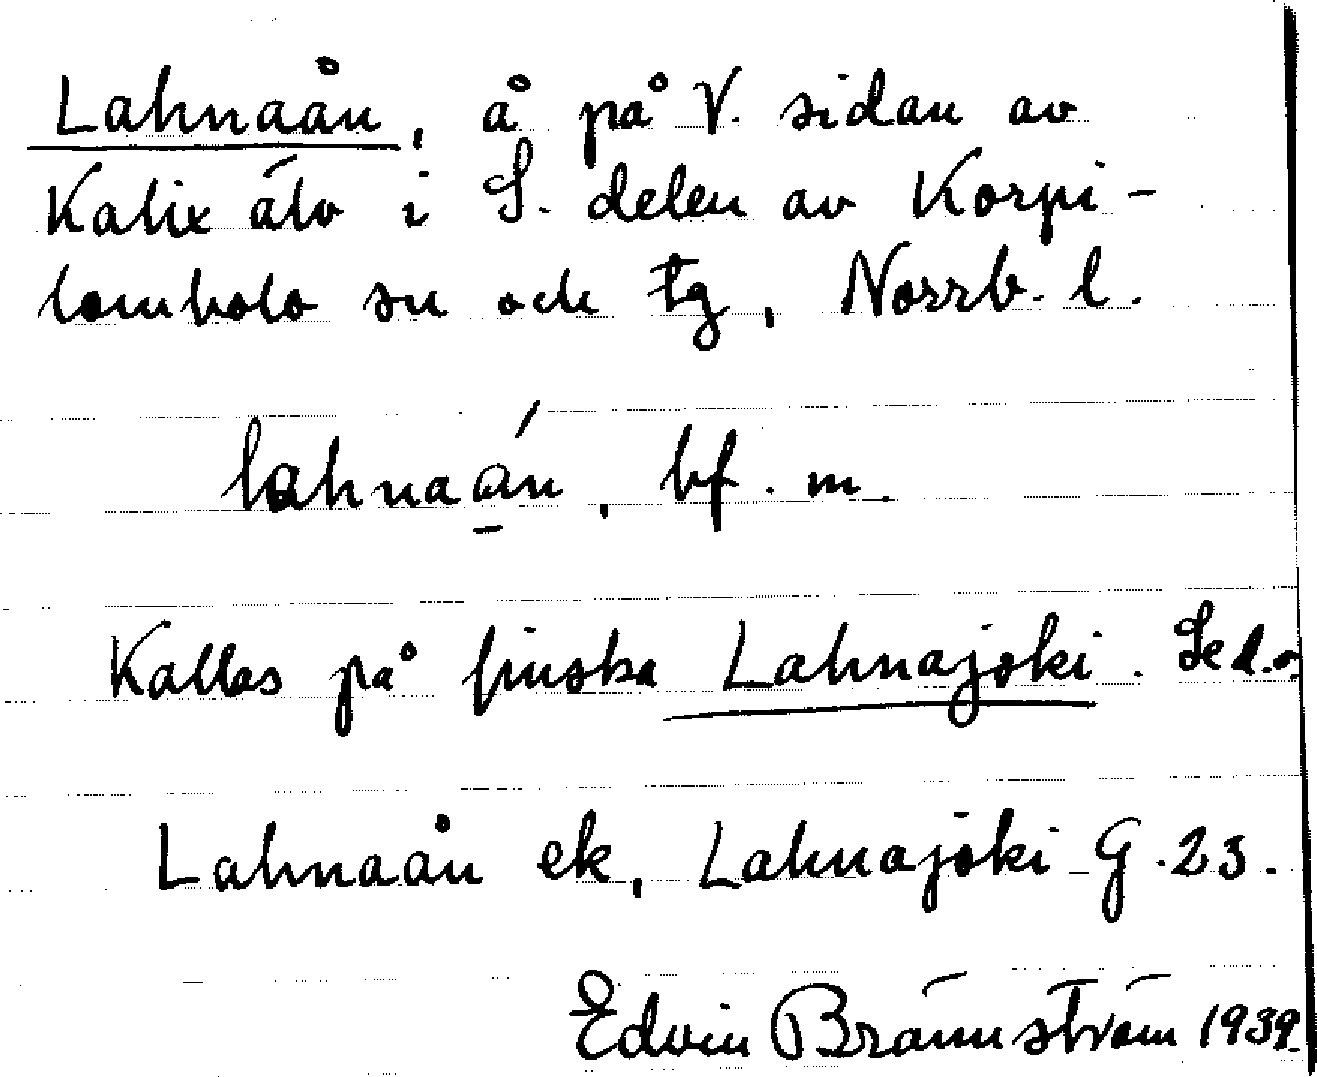 Lahnaån, å på V. sidan av
Kalix älv i S. delen av Korpi-
lombolo sn och tg, Norrb. l.
lahnaa̱ń, bf. m.
Kallas på finska Lahnajoki. Se d.o.
Lahnaån ek, Lahnajoki G. 23.
Edvin Brännström 1939